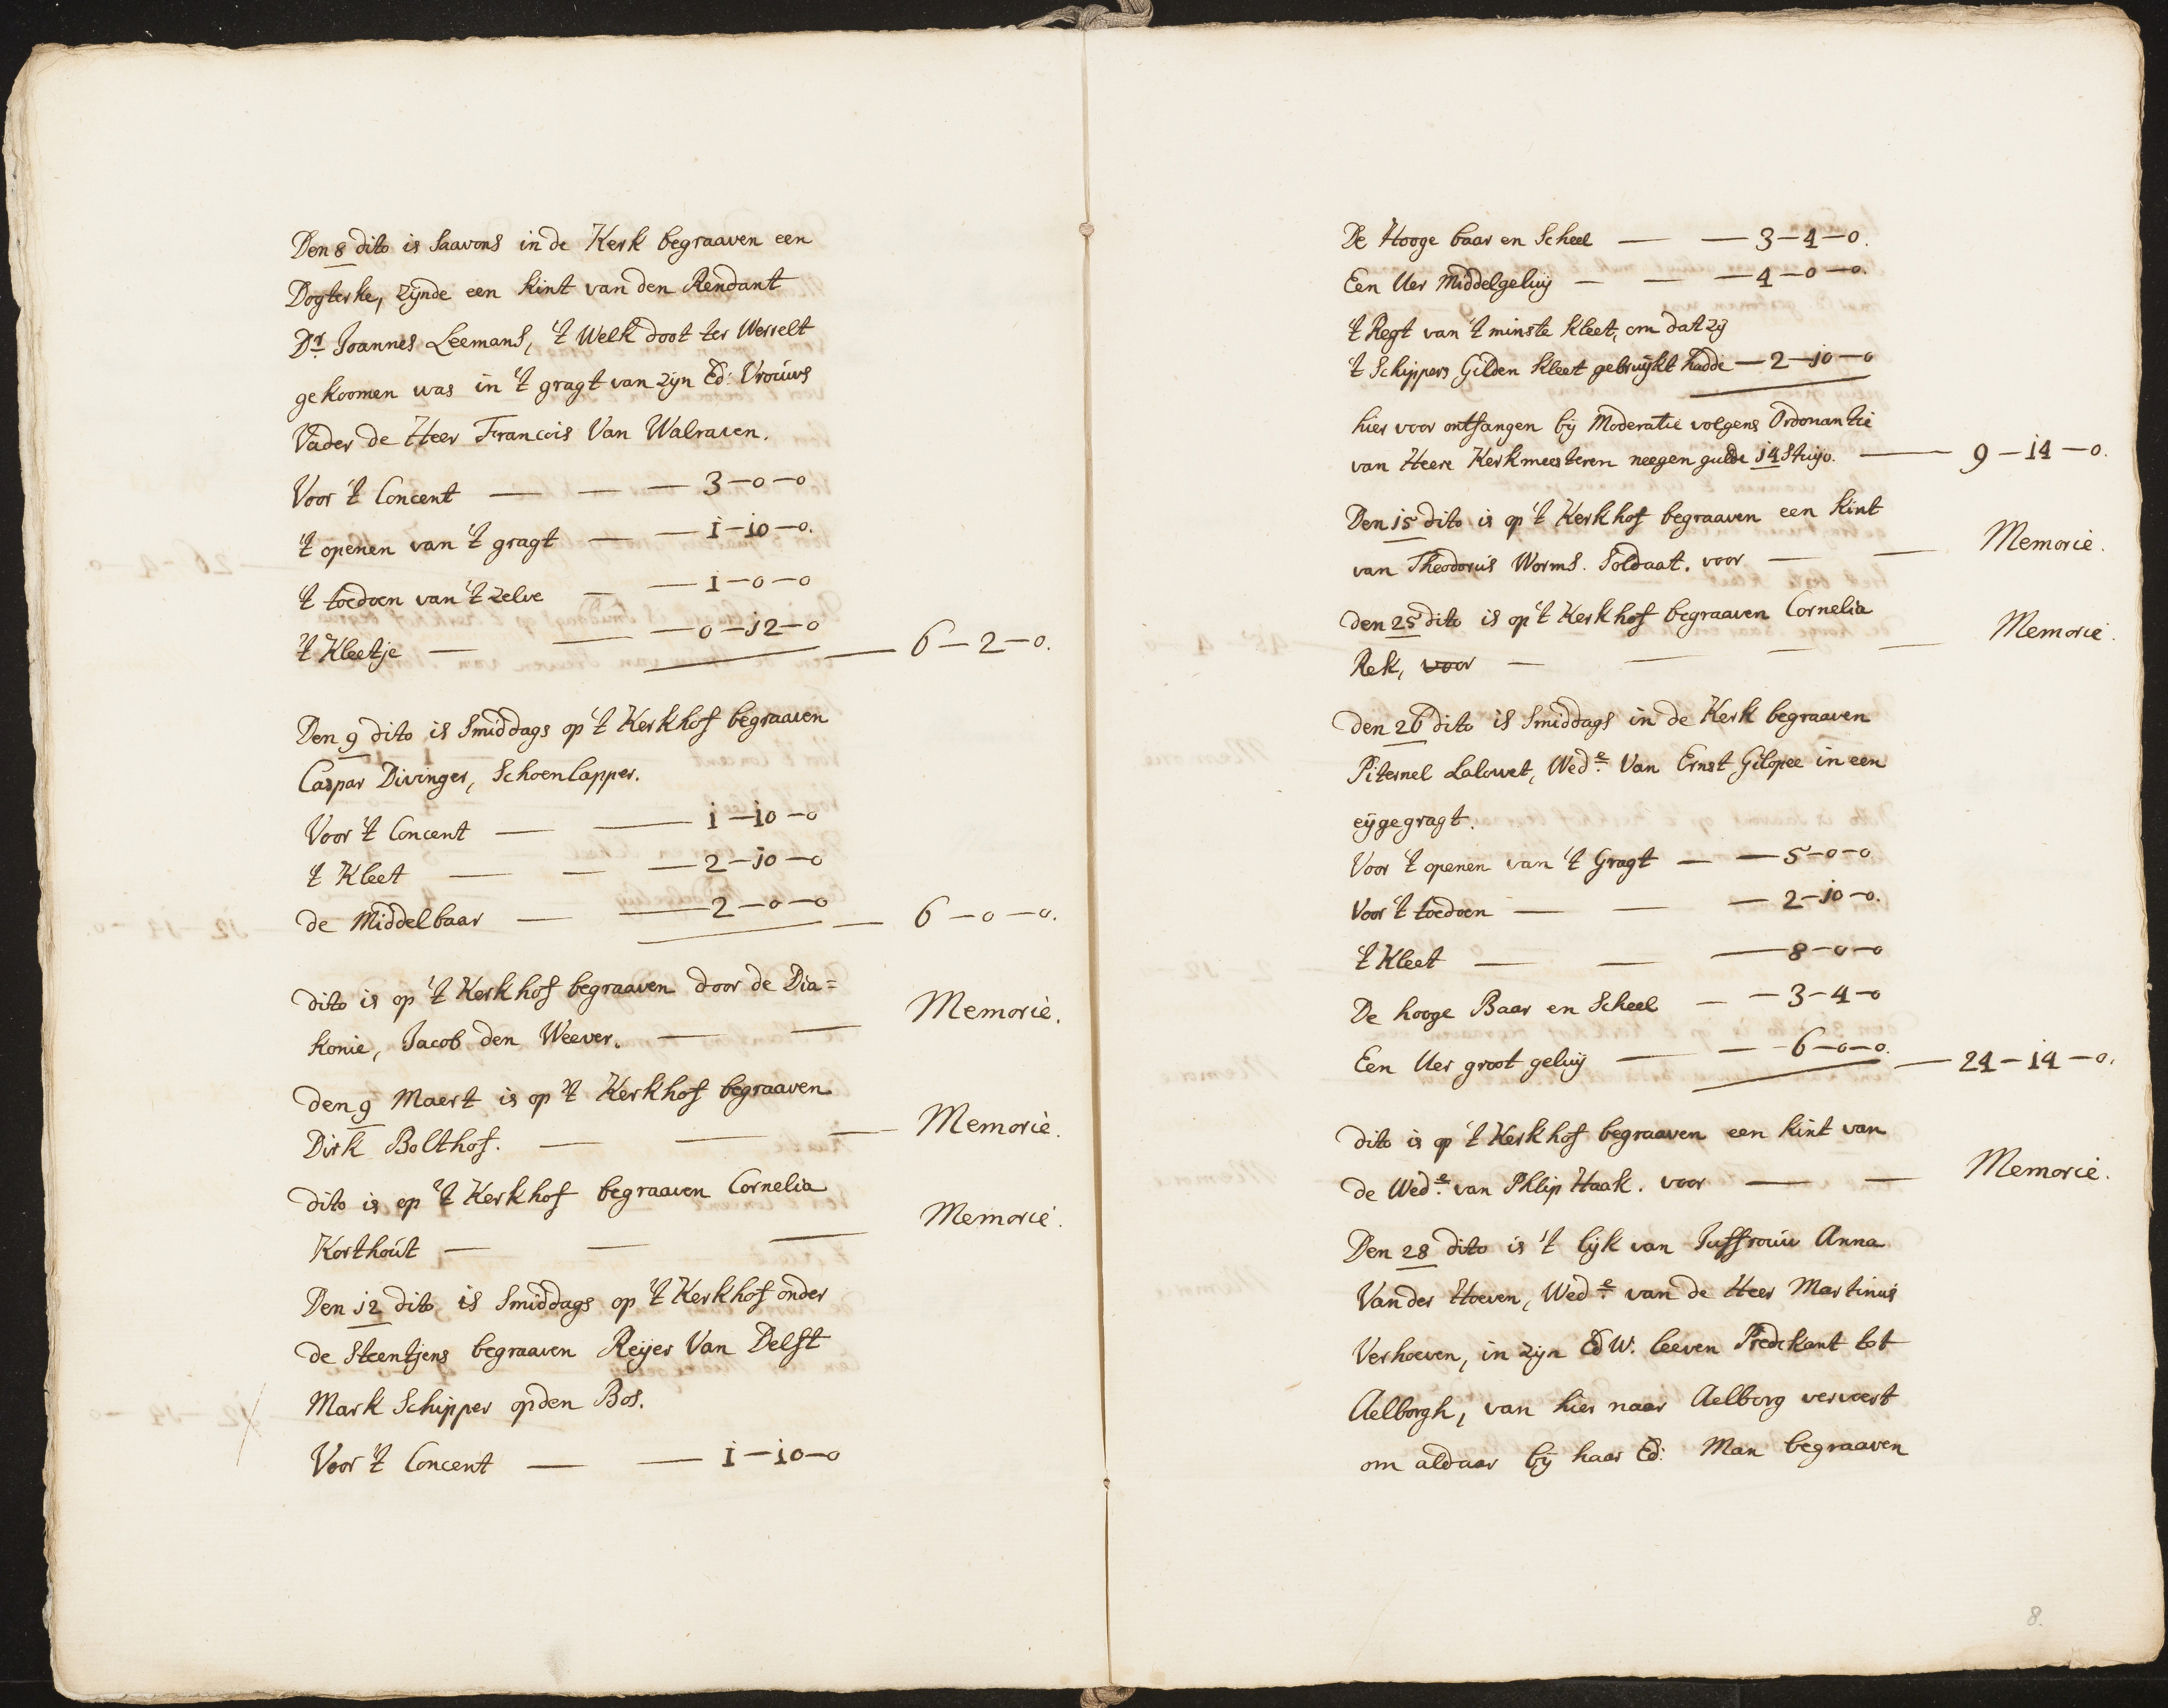 Den 8 dito is Saavons in de Kerk begraaven een
Dogterke, zijnde een kint van den Rendant
Dr. Joannes Leemans, 't Welk doot ter Werelt
gekoomen was in 't gragt van zijn Ed: Vrouws
Vader de Heer Francois Van Walraven.
Voor 't Concent — — — 3-0-0
't openen van 't gragt — — 1-10-0.
't toedoen van 't zelve — — 1-0-0
't Kleetje — — — 0-12-0 — 6-2-0.
Den 9 dito is Smiddags op 't Kerkhof begraaven
Caspar Divinger, Schoenlapper.
Voor 't Concent — — 1-10-0
't Kleet — — — 2-10-0
de Middelbaar — — 2-0-0 — 6-0-0.
dito is op 't Kerkhof begraaven door de Dia=
konie, Jacob den Weever. — — Memorie.
den 9 Maert is op 't Kerkhof begraaven
Dirk Bolthof. — — — Memorie.
dito is op 't Kerkhof begraaven Cornelia
Korthout — — — Memorie.
Den 12 dito is Smiddags op 't Kerkhof onder
de Steentjens begraaven Reijer Van Delft
Mark Schipper op den Bos.
Voor 't Concent — — 1-10-0
De Hooge baar en Scheel — — 3-4-0.
Een Uer Middelgeluij — — — 4-0-0.
't Regt van 't minste kleet, om dat zij
't Schippers Gilden kleet gebruijkt hadde — 2-10-0
hier voor ontfangen bij Moderatie volgens Ordonantie
van Heere Kerkmeesteren neegen gulde 14 Stuijv. — 9-14-0.
Den 15 dito is op 't Kerkhof begraaven een kint
van Theodorus Worms. Soldaat. voor — — Memorie.
den 25 dito is op 't Kerkhof begraaven Cornelia
Rek, voor — — — — Memorie.
den 26 dito is Smiddags in de Kerk begraaven
Piternel Lalouet, Wede. Van Ernst Gilopee in een
eijge gragt.
Voor 't openen van 't Gragt — — 5-0-0
Voor 't toedoen — — — 2-10-0.
't Kleet — — — 8-0-0
De hooge Baar en Scheel — — 3-4-0
Een Uer groot geluij — — 6-0-0. — 24-14-0.
dito is op 't Kerkhof begraaven een kint van
de Wede. van Phlip Haak. voor — — Memorie.
Den 28 dito is 't lijk van Juffrouw Anna
Van der Hoeven, Wede. van de Heer Martinus
Verhoeven, in zijn EdW. leeven Predikant tot
Aelborgh, van hier naar Aelborg vervoert
om aldaar bij haar Ed: Man begraaven
8.